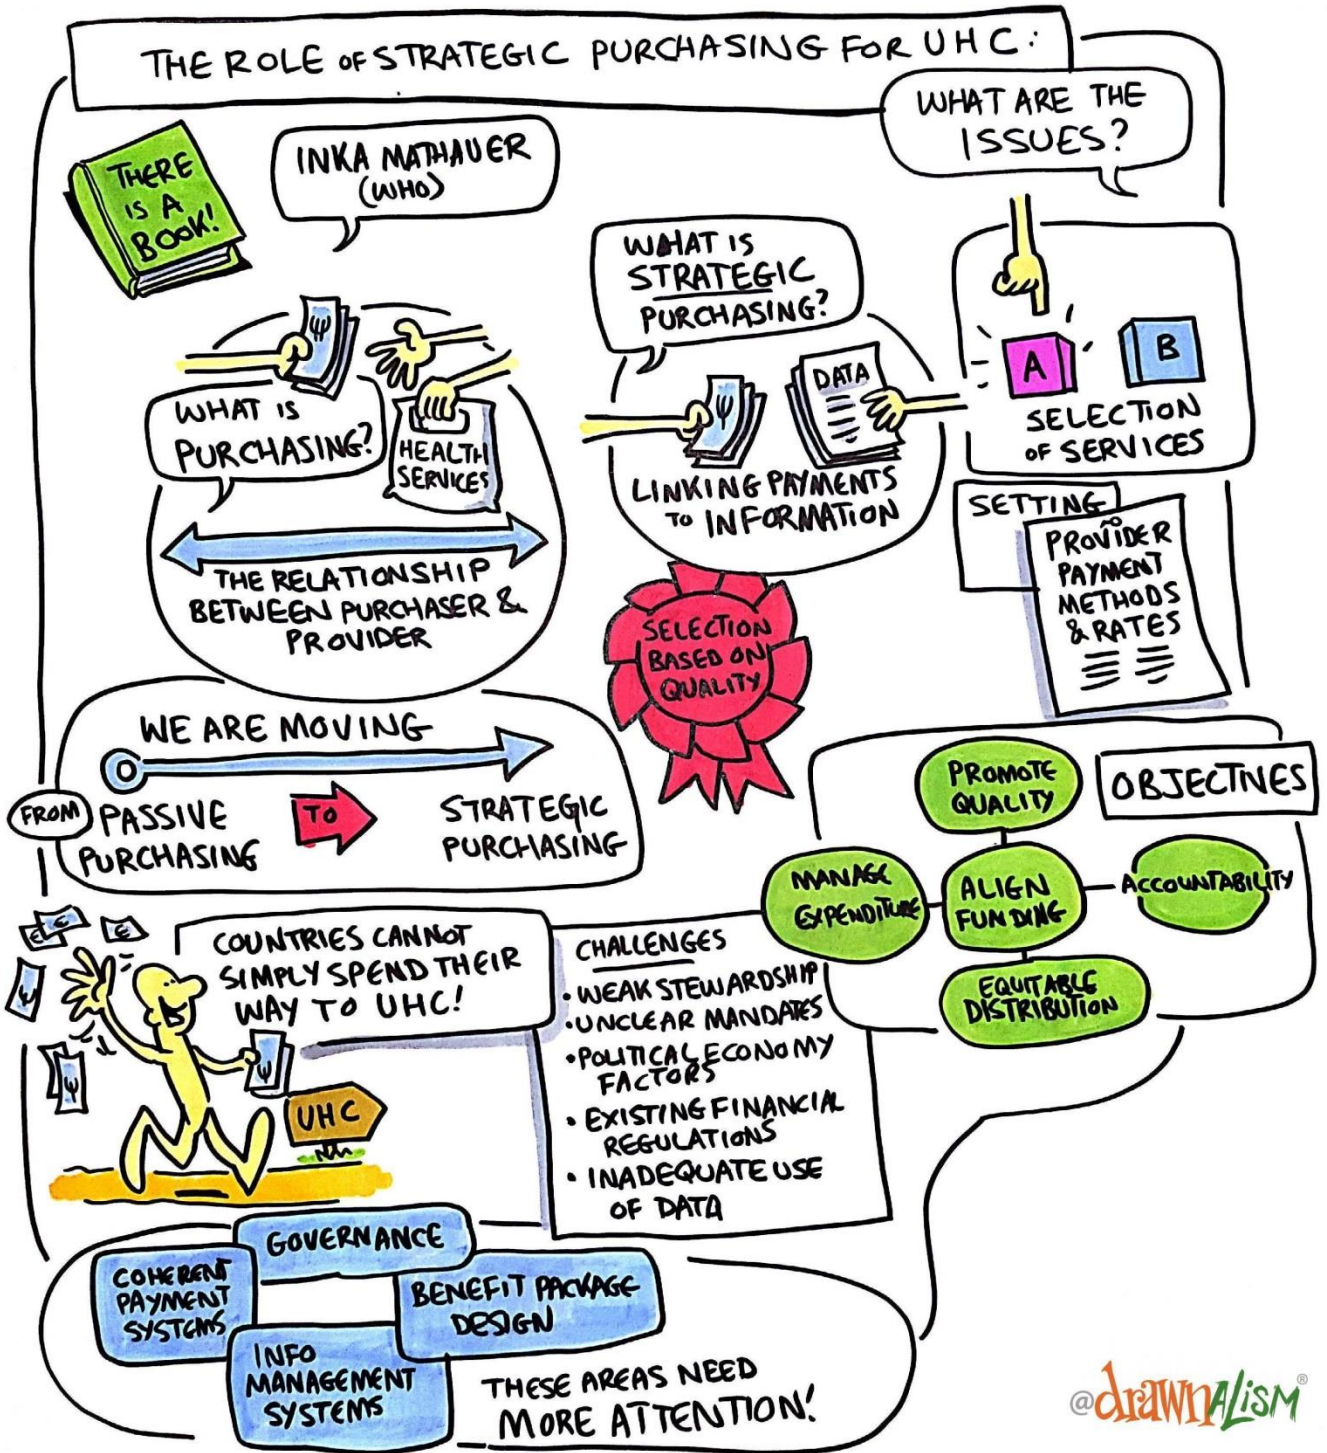 THE ROLE OF STRATEGIC PURCHASING FOR UHC:
WHAT ARE THE
ISSUES?
THERE
IS A
BOOK!
INKA MATHAUER
(WHO)
WHAT IS
PURCHASING?
HEALTH
SERVICES
THE RELATIONSHIP
BETWEEN PURCHASER &
PROVIDER
WHAT IS
STRATEGIC
PURCHASING?
DATA
LINKING PAYMENTS
TO INFORMATION
A
B
SELECTION
OF SERVICES
SETTING
PROVIDER
PAYMENT
METHODS
& RATES
SELECTION
BASED ON
QUALITY
WE ARE MOVING
FROM
PASSIVE
PURCHASING
TO
STRATEGIC
PURCHASING
OBJECTIVES
PROMOTE
QUALITY
MANAGE
EXPENDITURE
ALIGN
FUNDING
ACCOUNTABILITY
EQUITABLE
DISTRIBUTION
COUNTRIES CANNOT
SIMPLY SPEND THEIR
WAY TO UHC!
UHC
CHALLENGES
• WEAK STEWARDSHIP
• UNCLEAR MANDATES
• POLITICAL ECONOMY
FACTORS
• EXISTING FINANCIAL
REGULATIONS
• INADEQUATE USE
OF DATA
GOVERNANCE
COHERENT
PAYMENT
SYSTEMS
BENEFIT PACKAGE
DESIGN
INFO
MANAGEMENT
SYSTEMS
THESE AREAS NEED
MORE ATTENTION!
@drawnALiSM®